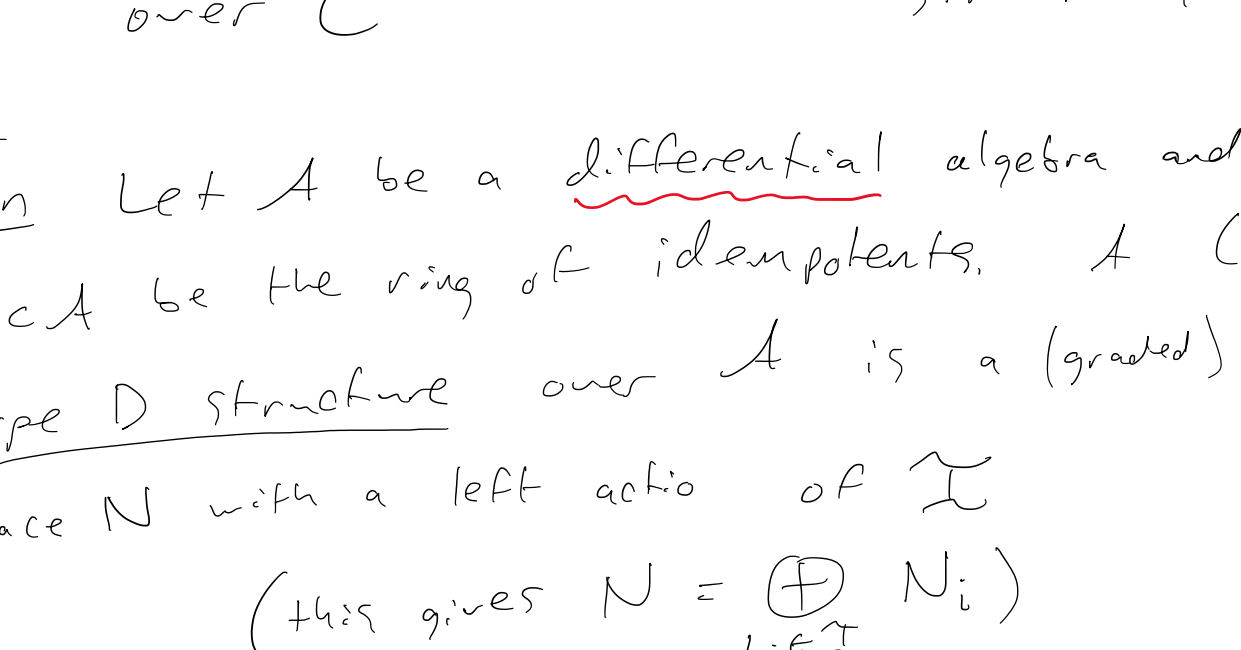 over C
n Let A be a differential algebra and
⊂ A be the ring of idempotents. A (
ype D structure over A is a (graded)
ace N with a left actio of I
(this gives N = ⊕ N_i)